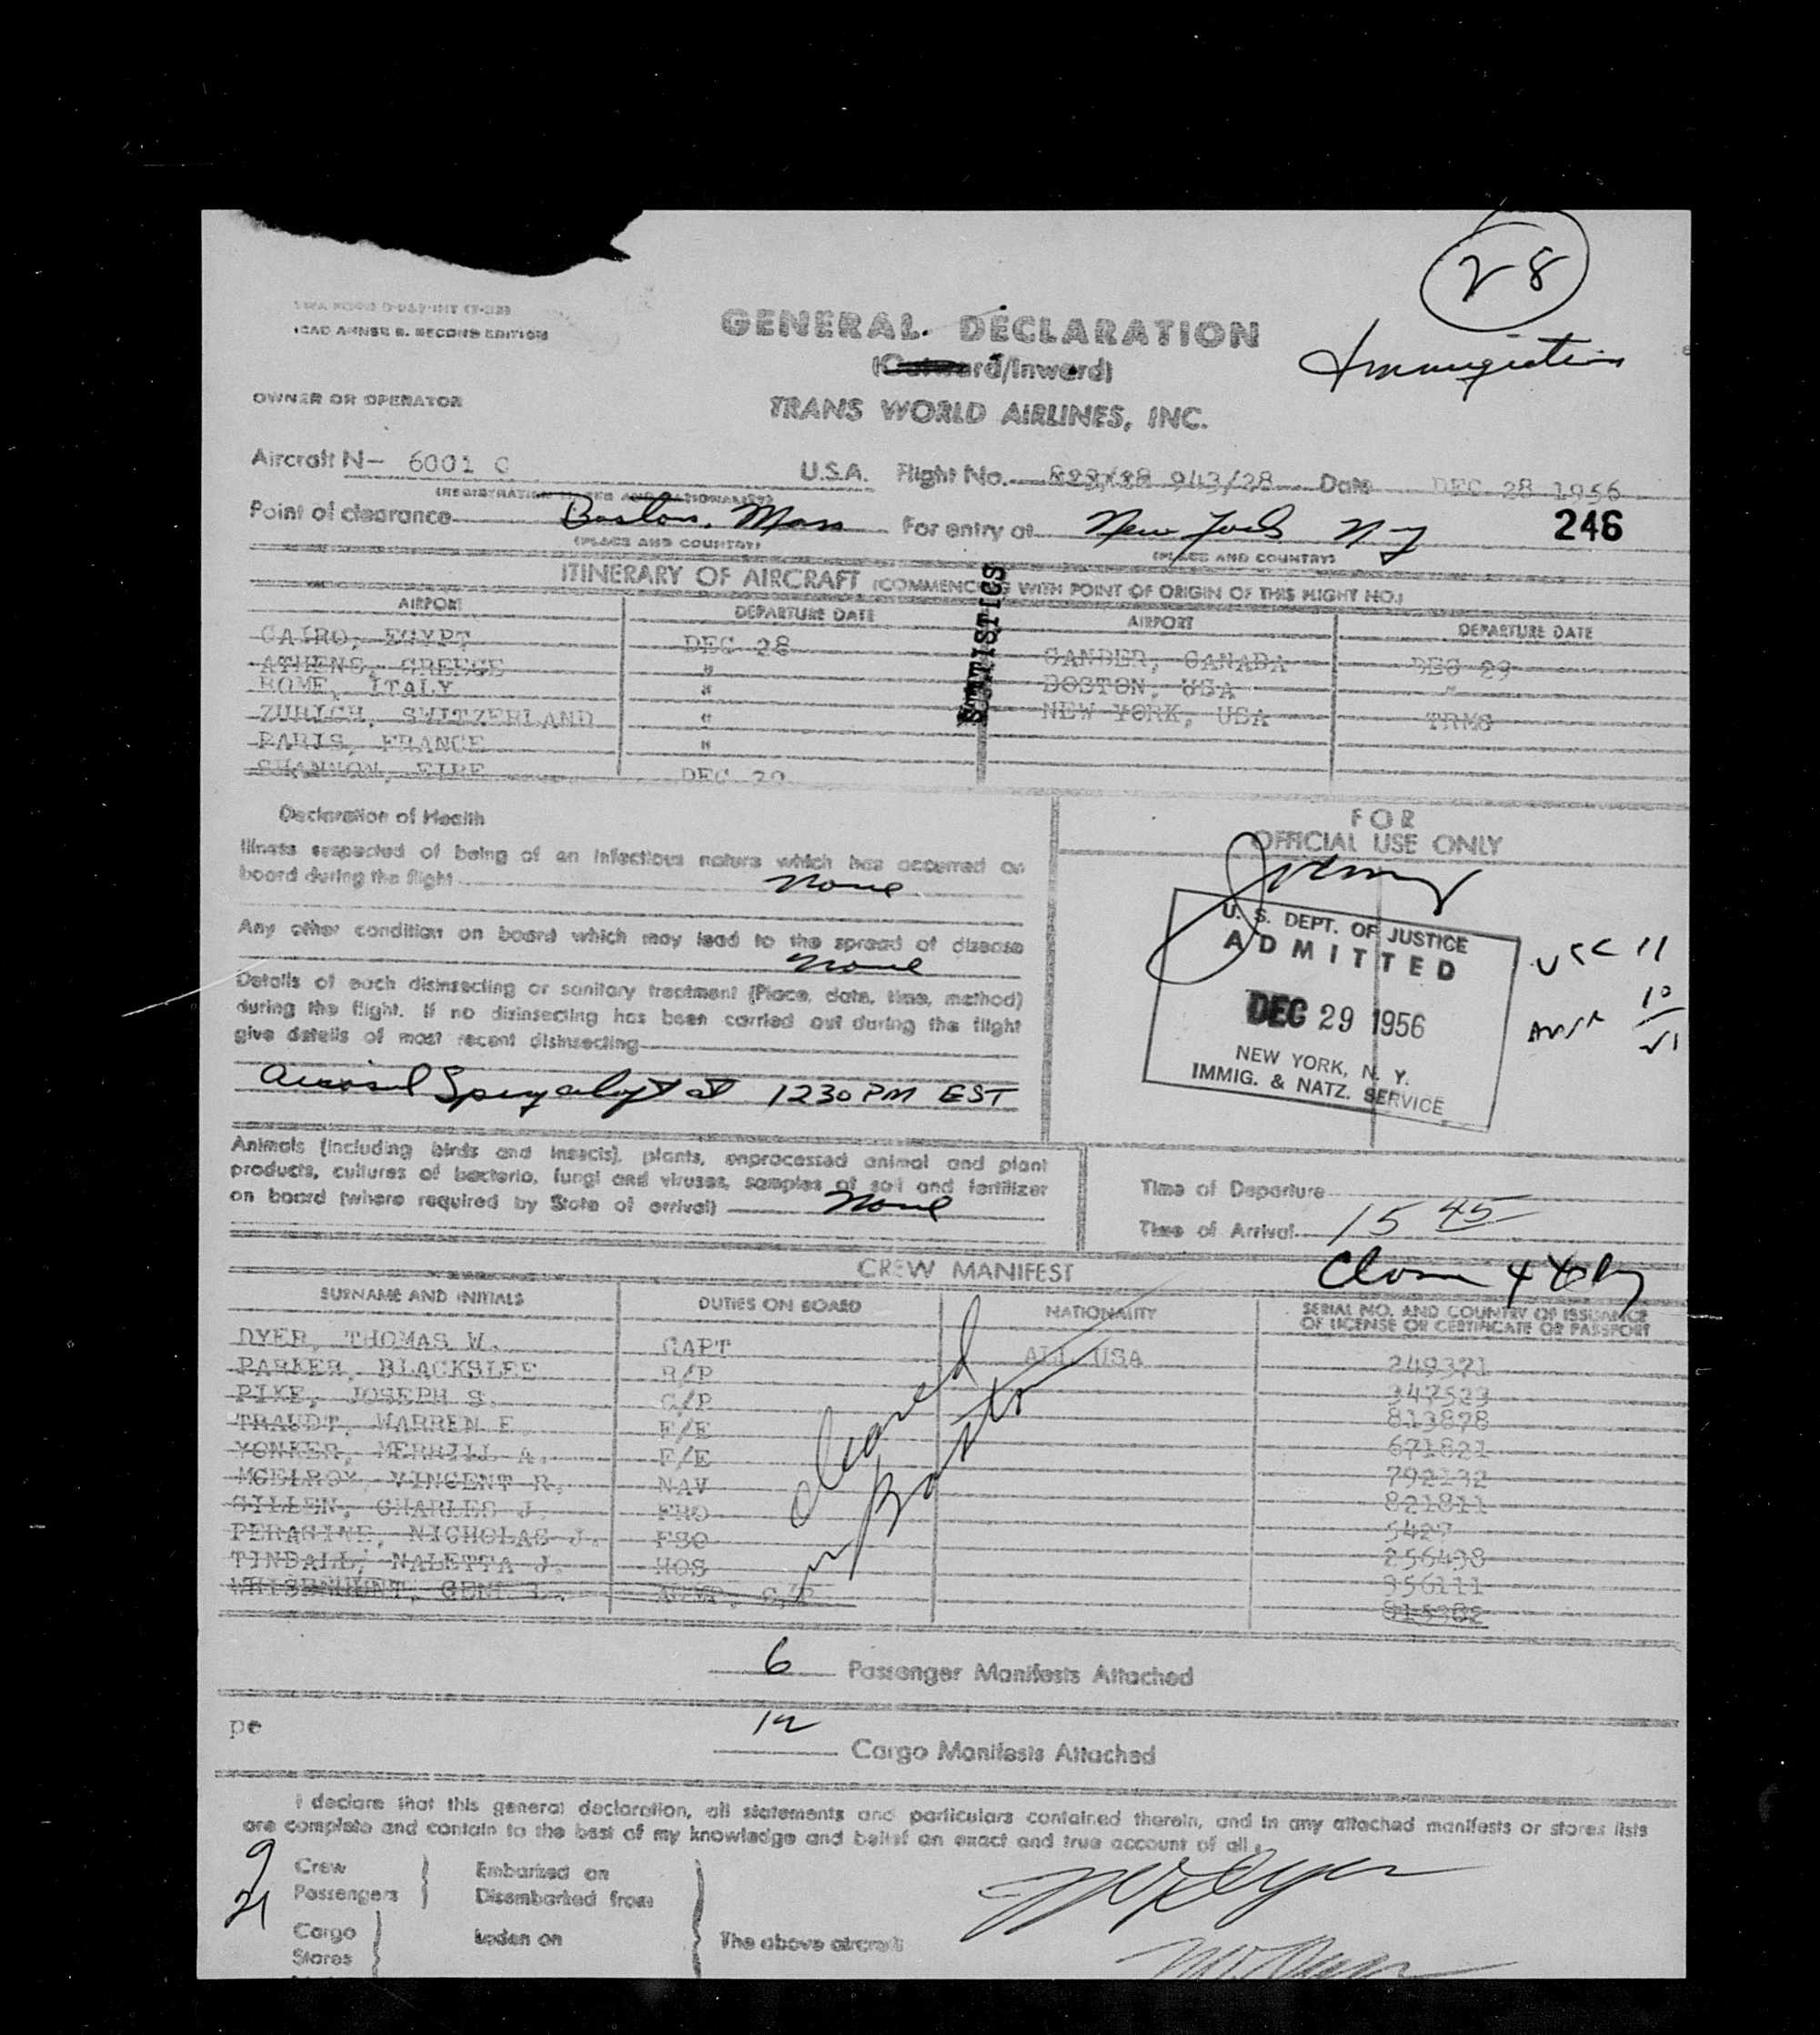 28
Immigration
ICAO ANNEX 9. SECOND EDITION
GENERAL DECLARATION
(Outward/Inward)
OWNER OR OPERATOR
TRANS WORLD AIRLINES, INC.
Aircraft N- 6001 C U.S.A. Flight No. 943/28 Date DEC 28 1956
(REGISTRATION MARKS AND NATIONALITY)
Point of clearance Boston, Mass For entry at New York N Y 246
(PLACE AND COUNTRY) (PLACE AND COUNTRY)
STATISTICS
ITINERARY OF AIRCRAFT (COMMENCING WITH POINT OF ORIGIN OF THIS FLIGHT NO.)
AIRPORT DEPARTURE DATE AIRPORT DEPARTURE DATE
CAIRO, EGYPT DEC 28 GANDER, CANADA DEC 29
ATHENS, GREECE " BOSTON, USA "
ROME, ITALY " NEW YORK, USA TRMG
ZURICH, SWITZERLAND "
PARIS, FRANCE "
SHANNON, EIRE DEC 29
Declaration of Health
Illness suspected of being of an infectious nature which has occurred on
board during the flight None
Any other condition on board which may lead to the spread of disease
None
Details of each disinsecting or sanitary treatment (Place, date, time, method)
during the flight. If no disinsecting has been carried out during the flight
give details of most recent disinsecting
at 1230 PM EST
FOR
OFFICIAL USE ONLY
U. S. DEPT. OF JUSTICE
ADMITTED
DEC 29 1956
NEW YORK, N. Y.
IMMIG. & NATZ. SERVICE
USC 11
10
21
Animals (including birds and insects), plants, unprocessed animal and plant
products, cultures of bacteria, fungi and viruses, samples of soil and fertilizer
on board (where required by State of arrival) None
Time of Departure
Time of Arrival 15 45
CREW MANIFEST
SURNAME AND INITIALS DUTIES ON BOARD NATIONALITY SERIAL NO. AND COUNTRY OF ISSUANCE
OF LICENSE OR CERTIFICATE OR PASSPORT
DYER, THOMAS W. CAPT ALL USA 249321
PARKER, BLACKSLEE R/P 347523
PIKE, JOSEPH S. C/P 813878
TRAUDT, WARREN E. F/E 671821
YONKER, MERRILL A. F/E 792132
MCELROY, VINCENT R. NAV 821811
GILLEN, CHARLES J. FRO 5427
PERASINE, NICHOLAS J. FSO 256498
TINDALL, NALETTA J. HOS 356111
WHISENHUNT, GENE L. C/P 815382
cleared
in Boston
6 Passenger Manifests Attached
pe
12 Cargo Manifests Attached
I declare that this general declaration, all statements and particulars contained therein, and in any attached manifests or stores lists
are complete and contain to the best of my knowledge and belief an exact and true account of all:
9 Crew Embarked on
21 Passengers Disembarked from
Cargo Laden on The above aircraft
Stores